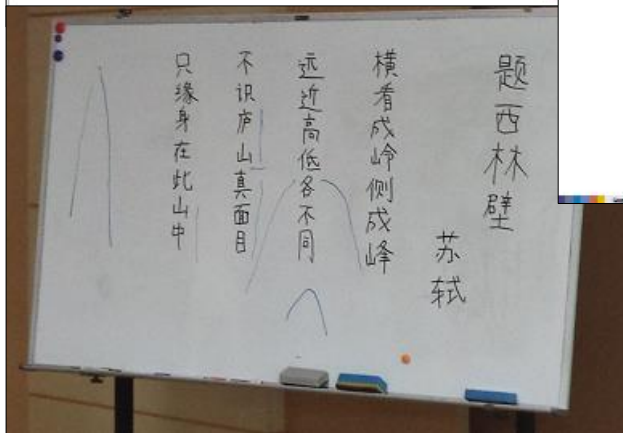 题西林壁
苏轼
横看成岭侧成峰
远近高低各不同
不识庐山真面目
只缘身在此山中